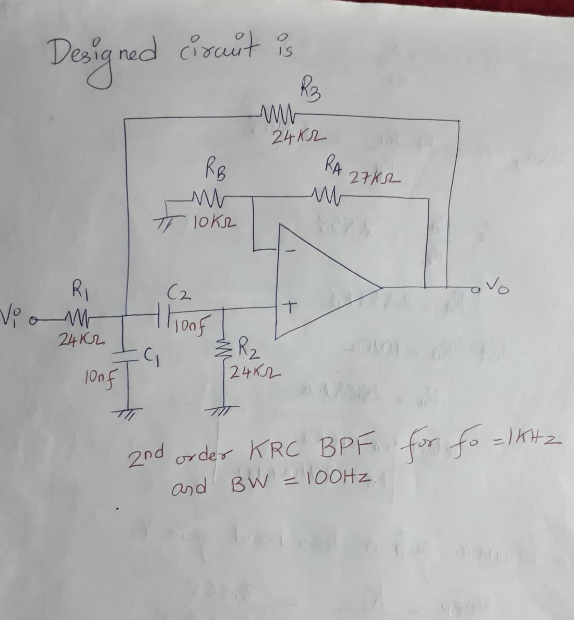 Designed circuit is
R3
24KΩ
RB
RA
27KΩ
10KΩ
-
Vi
R1
C2
+
Vo
24KΩ
10nf
C1
R2
10nf
24KΩ
2nd order KRC BPF for fo =1KHz
and BW = 100Hz.